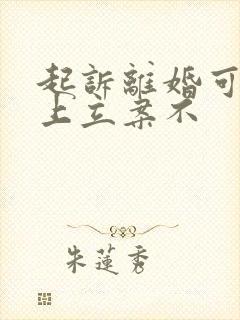 起訴離婚可
上立案不
朱蓮秀